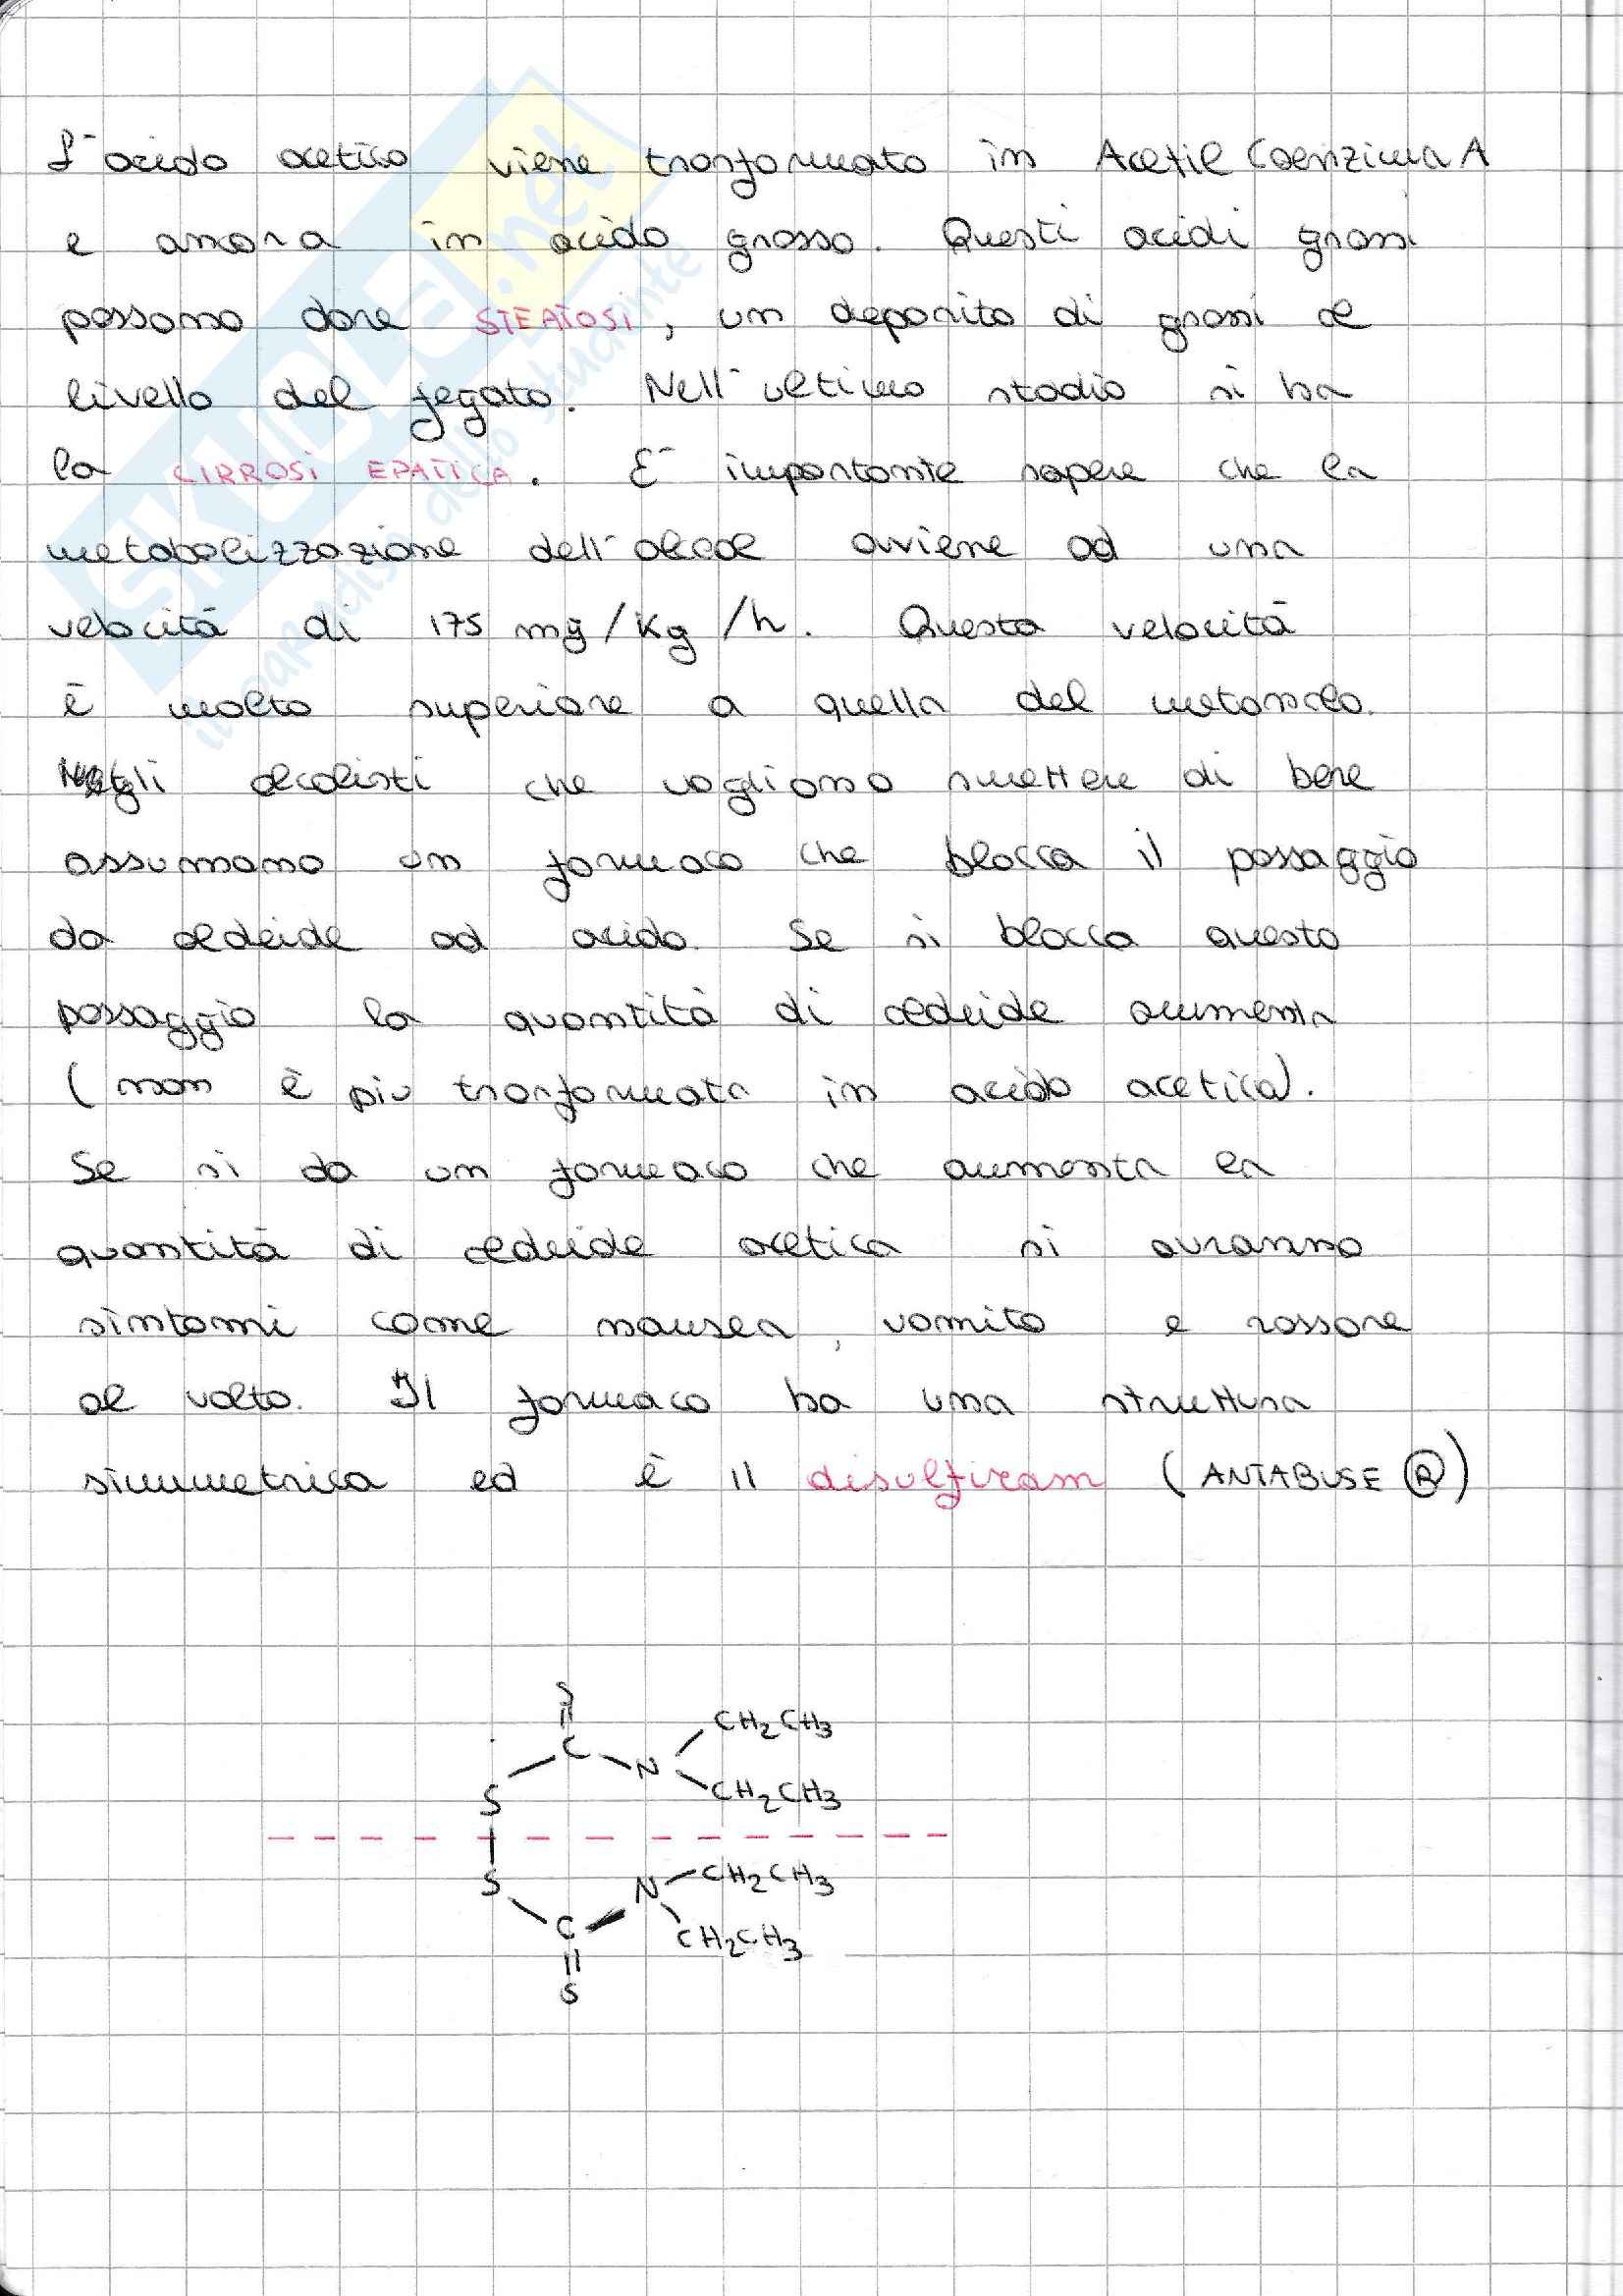 L'acido acetico viene trasformato in Acetil Coenzima A
e ancora in acido grasso. Questi acidi grassi
possono dare STEATOSI, un deposito di grassi al
livello del fegato. Nell'ultimo stadio si ha
la CIRROSI EPATICA. È importante sapere che la
metabolizzazione dell'alcol avviene ad una
velocità di 175 mg/Kg/h. Questa velocità
è molto superiore a quella del metanolo.
Negli alcolisti che vogliono smettere di bere
assumono un farmaco che blocca il passaggio
da aldeide ad acido. Se si blocca questo
passaggio la quantità di aldeide aumenta
(non è più trasformata in acido acetico).
Se si da un farmaco che aumenta la
quantità di aldeide acetica si avranno
sintomi come nausea, vomito e rossore
al volto. Il farmaco ha una struttura
simmetrica ed è il disulfiram (ANTABUSE ®)
S
C N CH2CH3
CH2CH3
S
S
N CH2CH3
C CH2CH3
S
SKUOLA.net
il paradiso dello studente